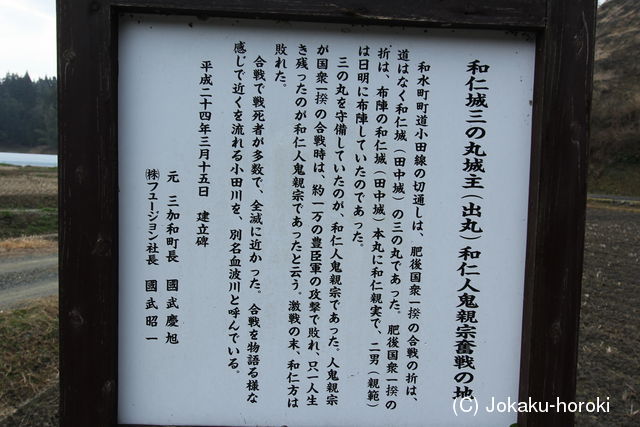 和仁城三の丸城主(出丸)和仁人鬼親宗奮戦の地
和水町町道小田線の切通しは、肥後国衆一揆の合戦の折は、
道はなく和仁城(田中城)の三の丸であった。肥後国衆一揆の
折は、布陣の和仁城(田中城)本丸に和仁親実で、二男(親範)
は日明に布陣していたのであった。
三の丸を守備していたのが、和仁人鬼親宗であった。人鬼親宗
が国衆一揆の合戦時は、約一万の豊臣軍の攻撃で敗れ、只一人生
き残ったのが和仁人鬼親宗であったと云う。激戦の末、和仁方は
敗れた。
合戦で戦死者が多数で、全滅に近かった。合戦を物語る様な
感じで近くを流れる小田川を、別名血波川と呼んでいる。
平成二十四年三月十五日 建立碑
元 三加和町長 國武慶旭
㈱フュージョン社長 國武昭一
(C) Jokaku-horoki